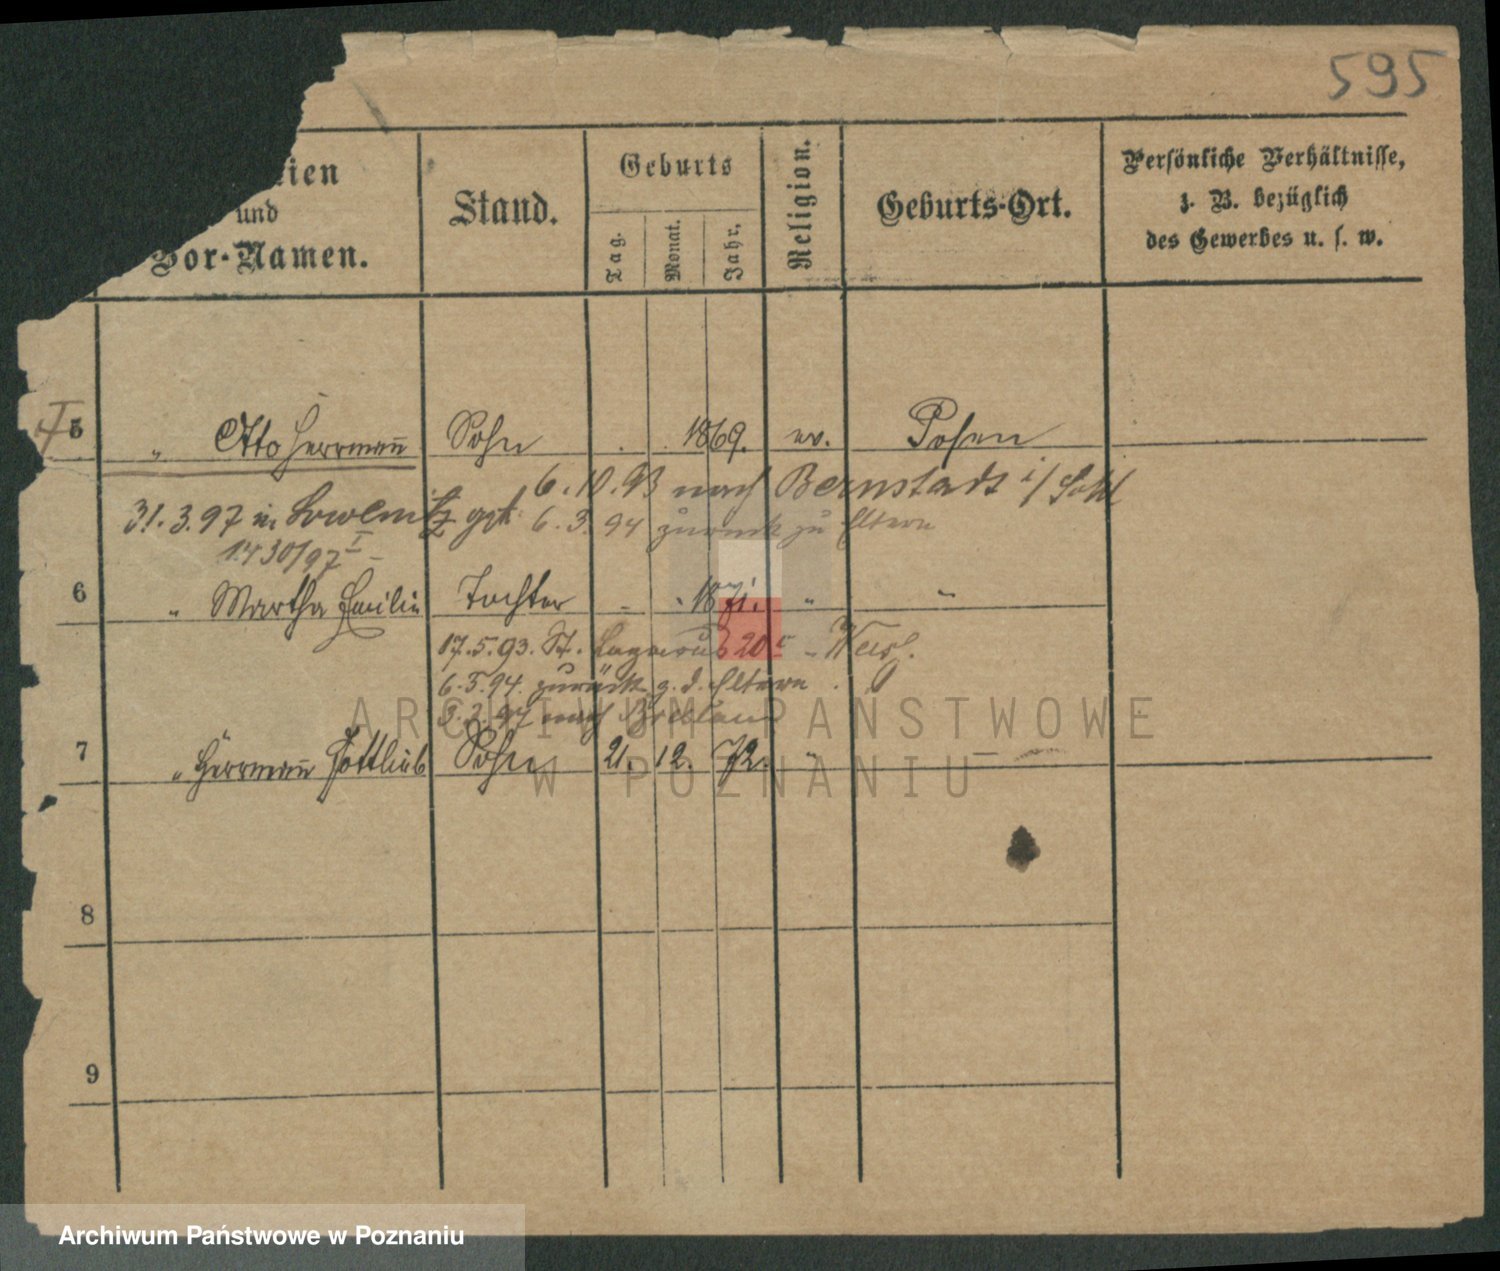 595
ien
und
Vor-Namen.
Stand.
Geburts
Tag.
Monat.
Jahr.
Religion.
Geburts-Ort.
Persönliche Verhältnisse,
z. B. bezüglich
des Gewerbes u. s. w.
5 „ Otto Herrmann Sohn 1869. ev. Posen
6.10.93 nach Bernstadt i/Schl
31.3.97 in 6.3.94 zurück zu Eltern
1430/97 I
6 „ Martha Emilie Tochter 1871. „ „
17.5.93. St. Lazarus 20
6.3.94. zurück z. d. Eltern
nach Breslau
7 „ Herrmann Gottlieb Sohn 21. 12. 72. „
8
9
ARCHIWUM PAŃSTWOWE
W POZNANIU
Archiwum Państwowe w Poznaniu